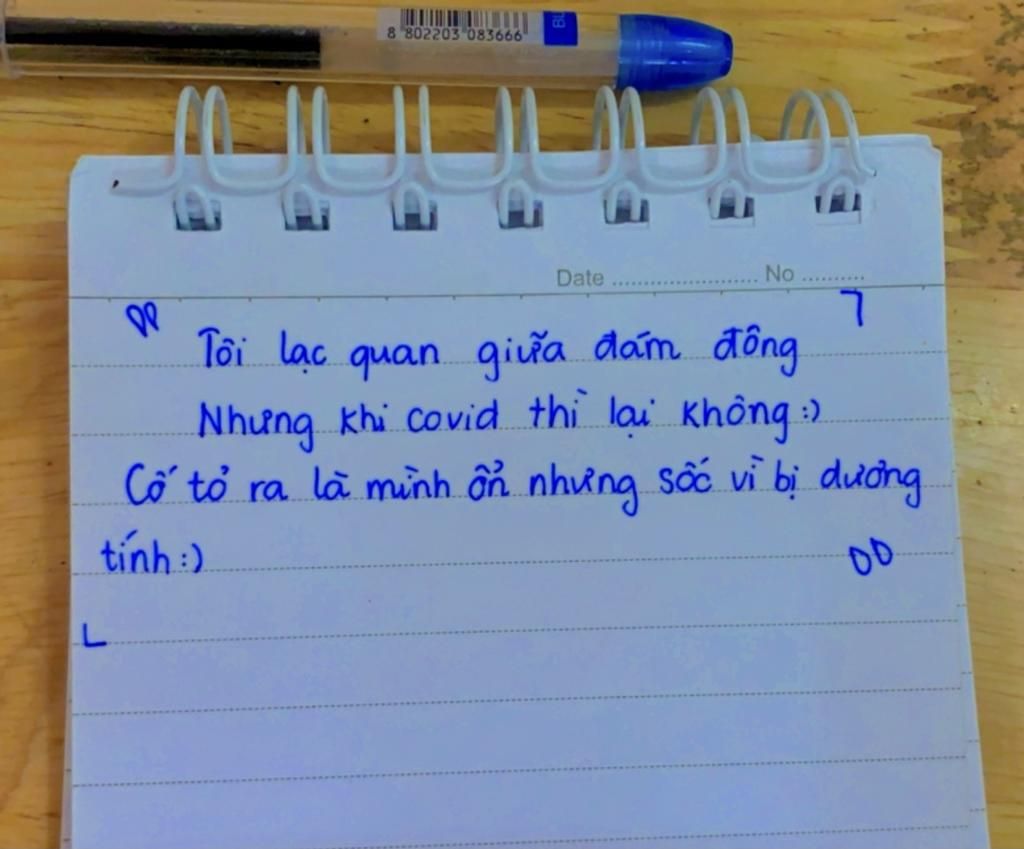 8 802203 083666
BL
Date ........................ No ..........
Tôi lạc quan giữa đám đông
Nhưng khi covid thì lại không :)
Cố tỏ ra là mình ổn nhưng sốc vì bị dương
tính :)